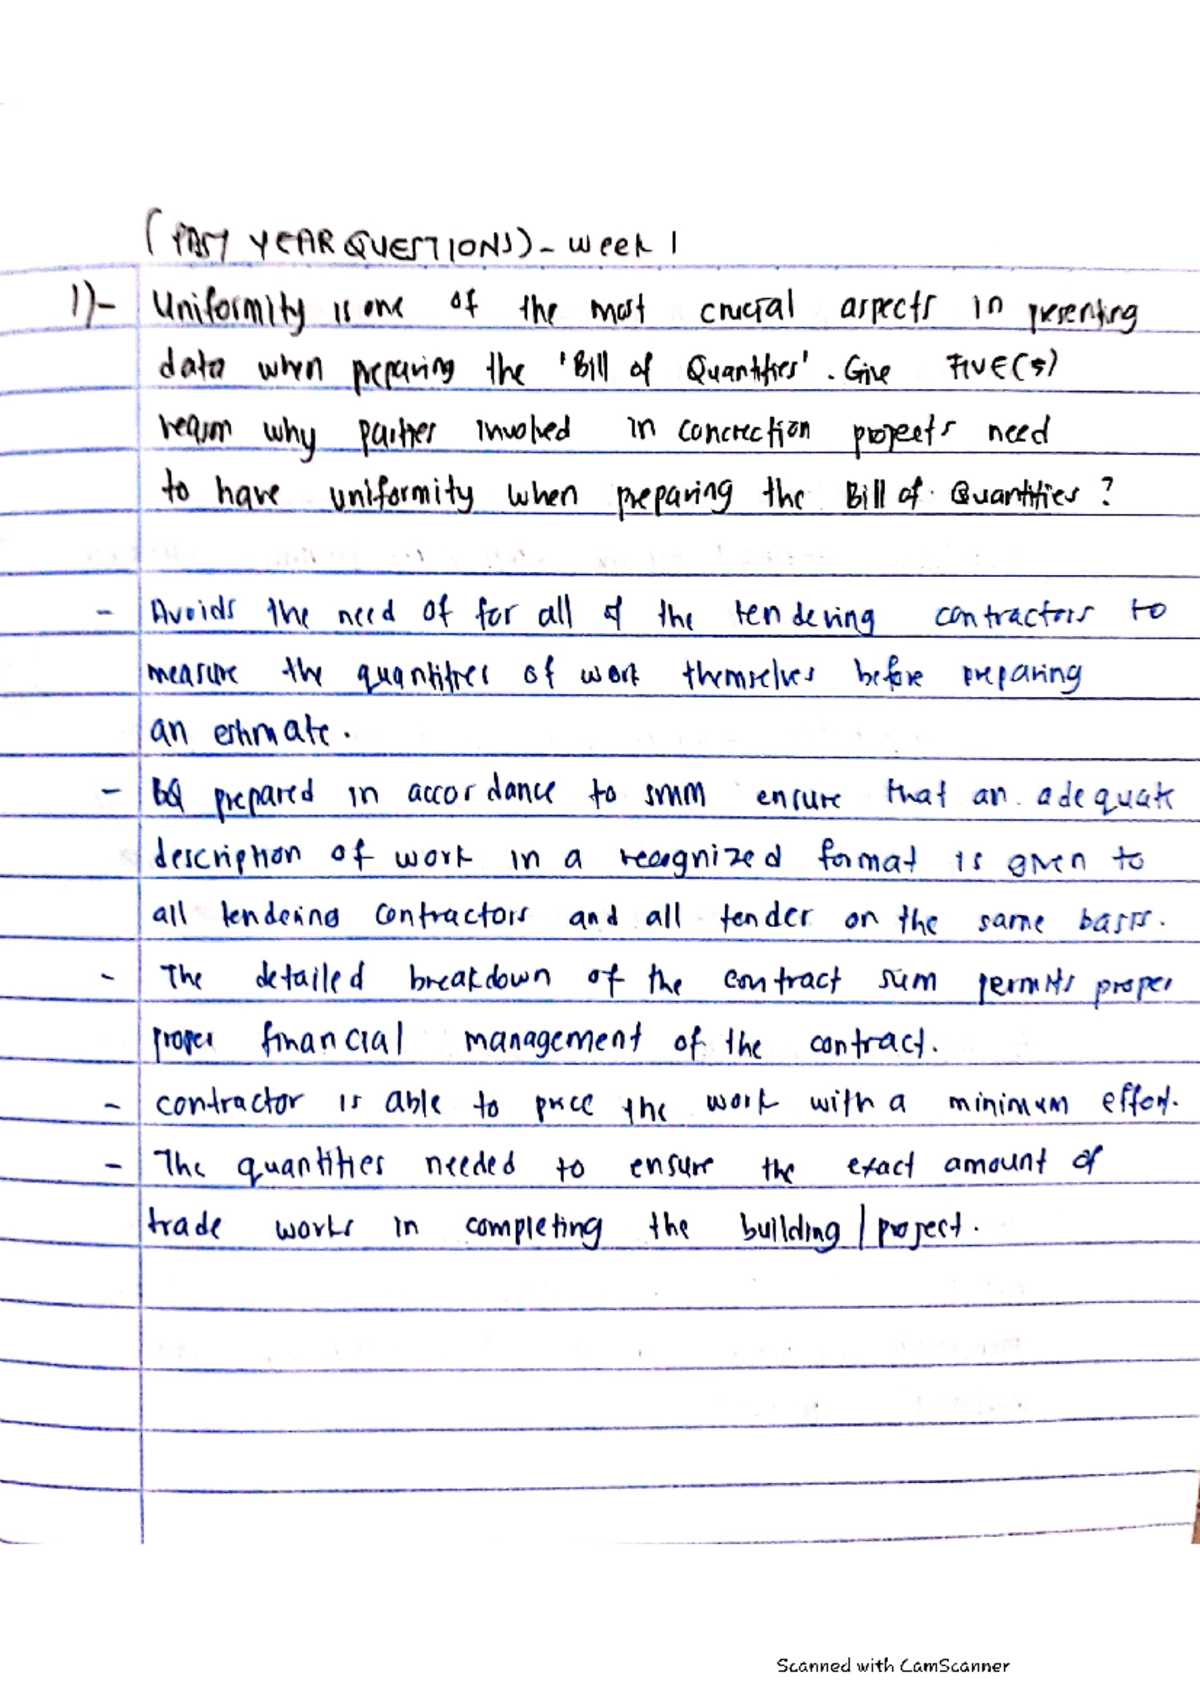 (PAST YEAR QUESTIONS) - Week 1
1)- Uniformity is one of the most crucial aspects in presenting
data when preparing the 'Bill of Quantities'. Give FIVE(5)
reason why parties involved in concrection projects need
to have uniformity when preparing the Bill of Quantities?
- Avoids the need of for all of the tendering contractors to
measure the quantities of work themselves before preparing
an estimate.
- BQ prepared in accordance to smm ensure that an adequate
description of work in a recognized format is given to
all tendering contractors and all tender on the same basis.
- The detailed breakdown of the contract sum permits proper
proper financial management of the contract.
- contractor is able to price the work with a minimum effort.
- The quantities needed to ensure the exact amount of
trade works in completing the building / project.
Scanned with CamScanner